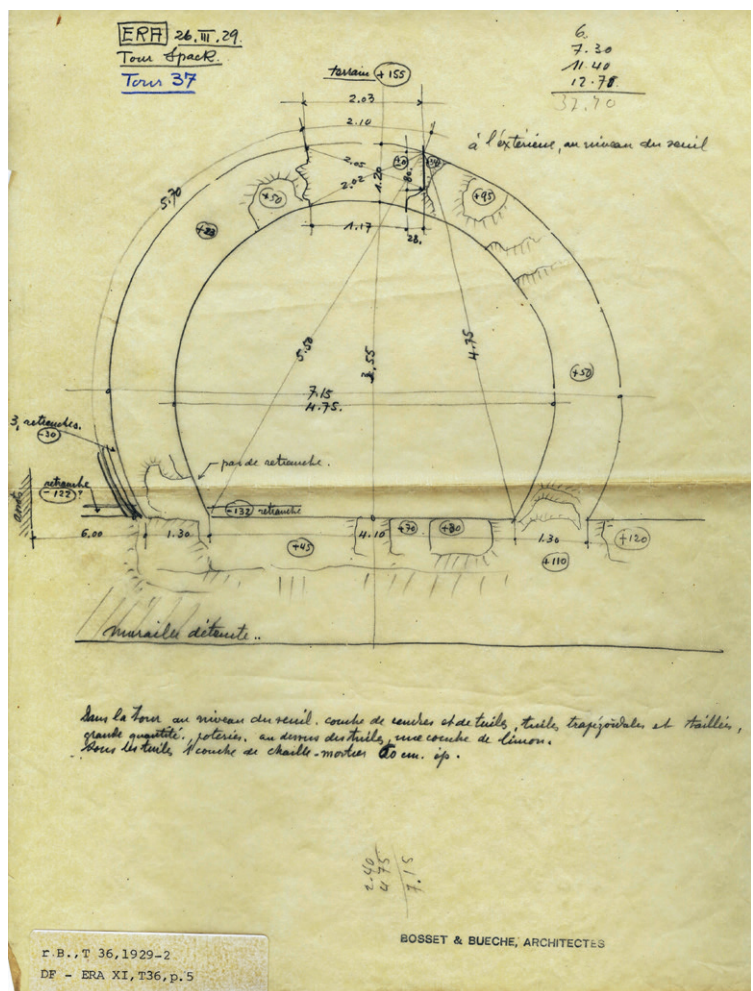 ERA 26.III.29.
Tour Spack.
Tour 37
6.
7.30
11.40
12.70
32.70
terrain +155
2.03
2.10
à l'extérieur, au niveau du seuil
2.05
2.02
1.20
80.
+50
+95
5.70
1.17
28.
5.50
3.55
4.75
+50
7.15
4.75.
3, retranches.
-30
pas de retranche.
retranche
-122 ?
-132 retranche
6.00
1.30
+45
4.10
+70
+80
1.30
+110
+120
muraille détruite..
Dans la tour au niveau du seuil. couche de cendres et de tuiles, tuiles trapézoïdales et taillées,
grande quantité, poteries. au dessus des tuiles, une couche de limon.
Sous les tuiles couche de chaille-mortier 10 cm. ép.
2.40
4.75
7.15
BOSSET & BUECHE, ARCHITECTES
r.B.,T 36,1929-2
DF - ERA XI,T36,p.5